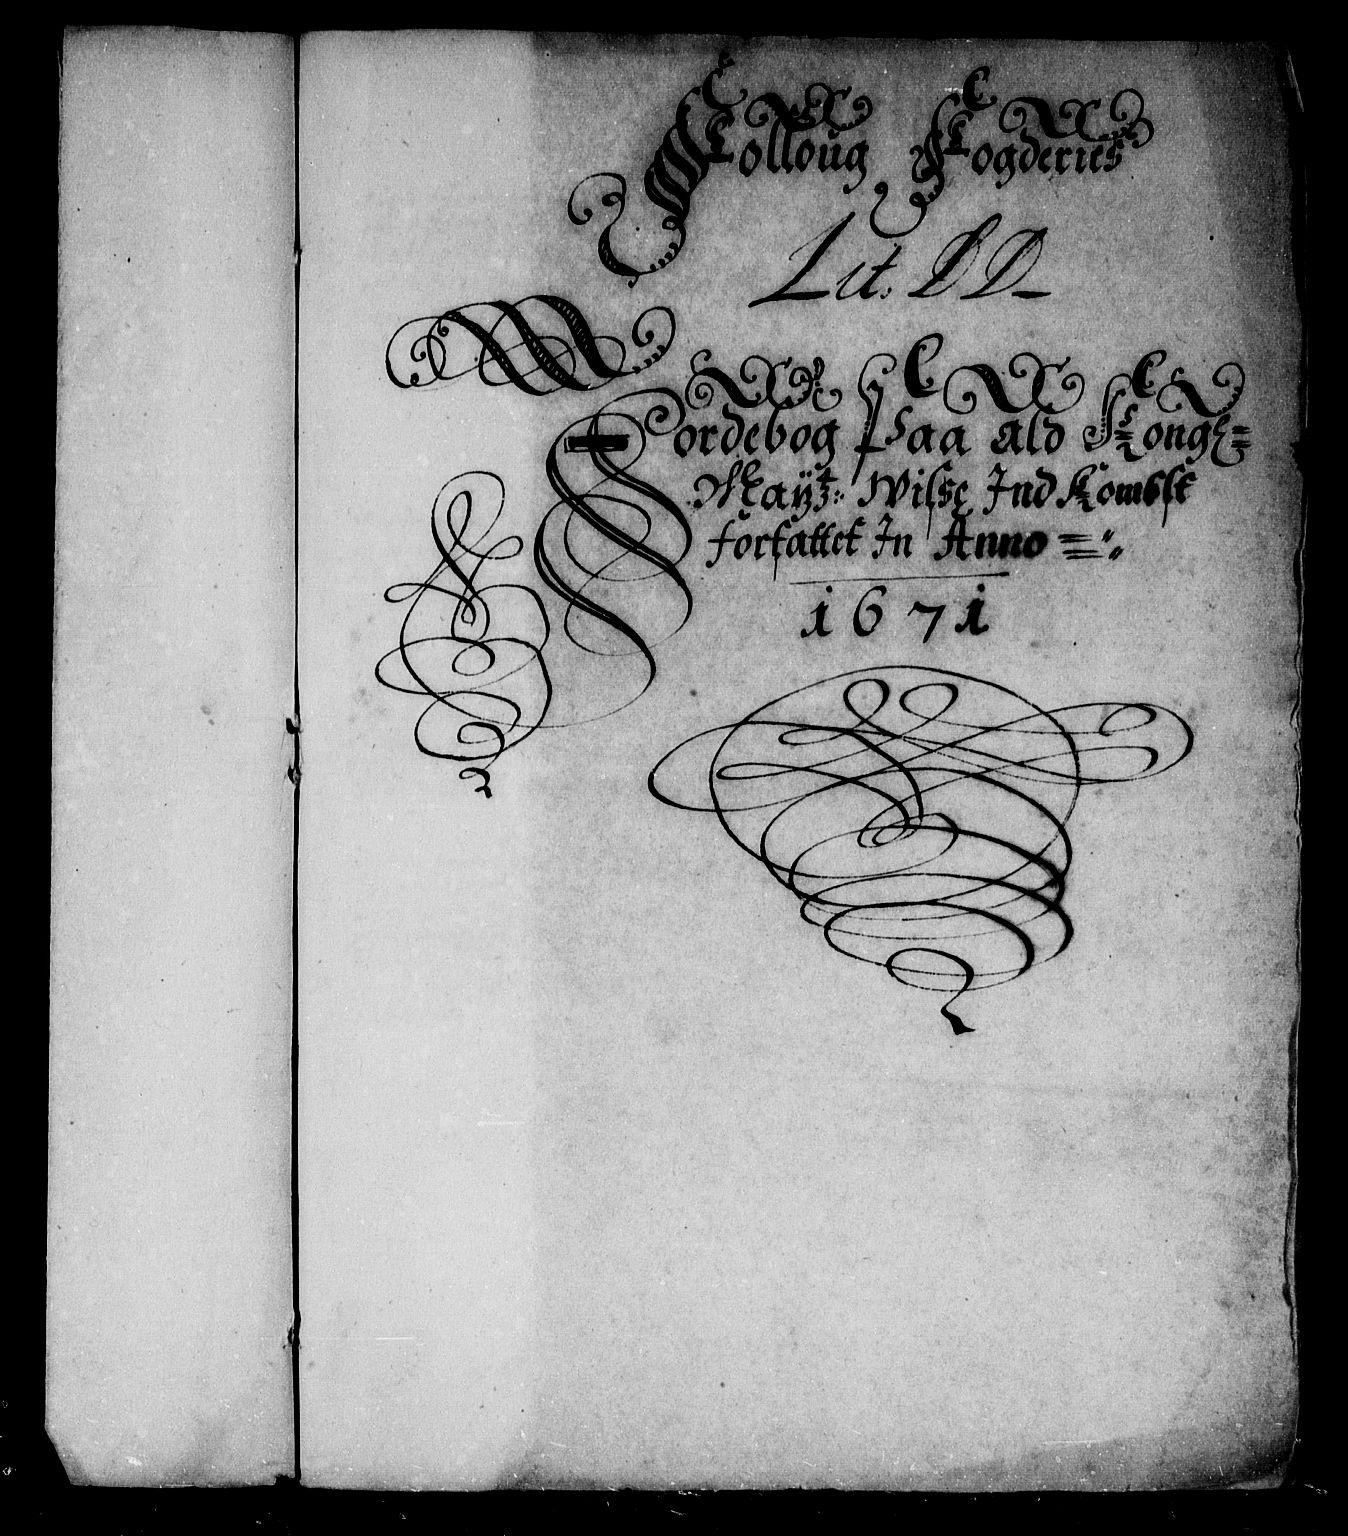 Folloug Fogderies
Lit. DD
Jordebog Paa ald Kongl=
Mayt: Wisse Ind Kombst
forfattet In Anno
1671